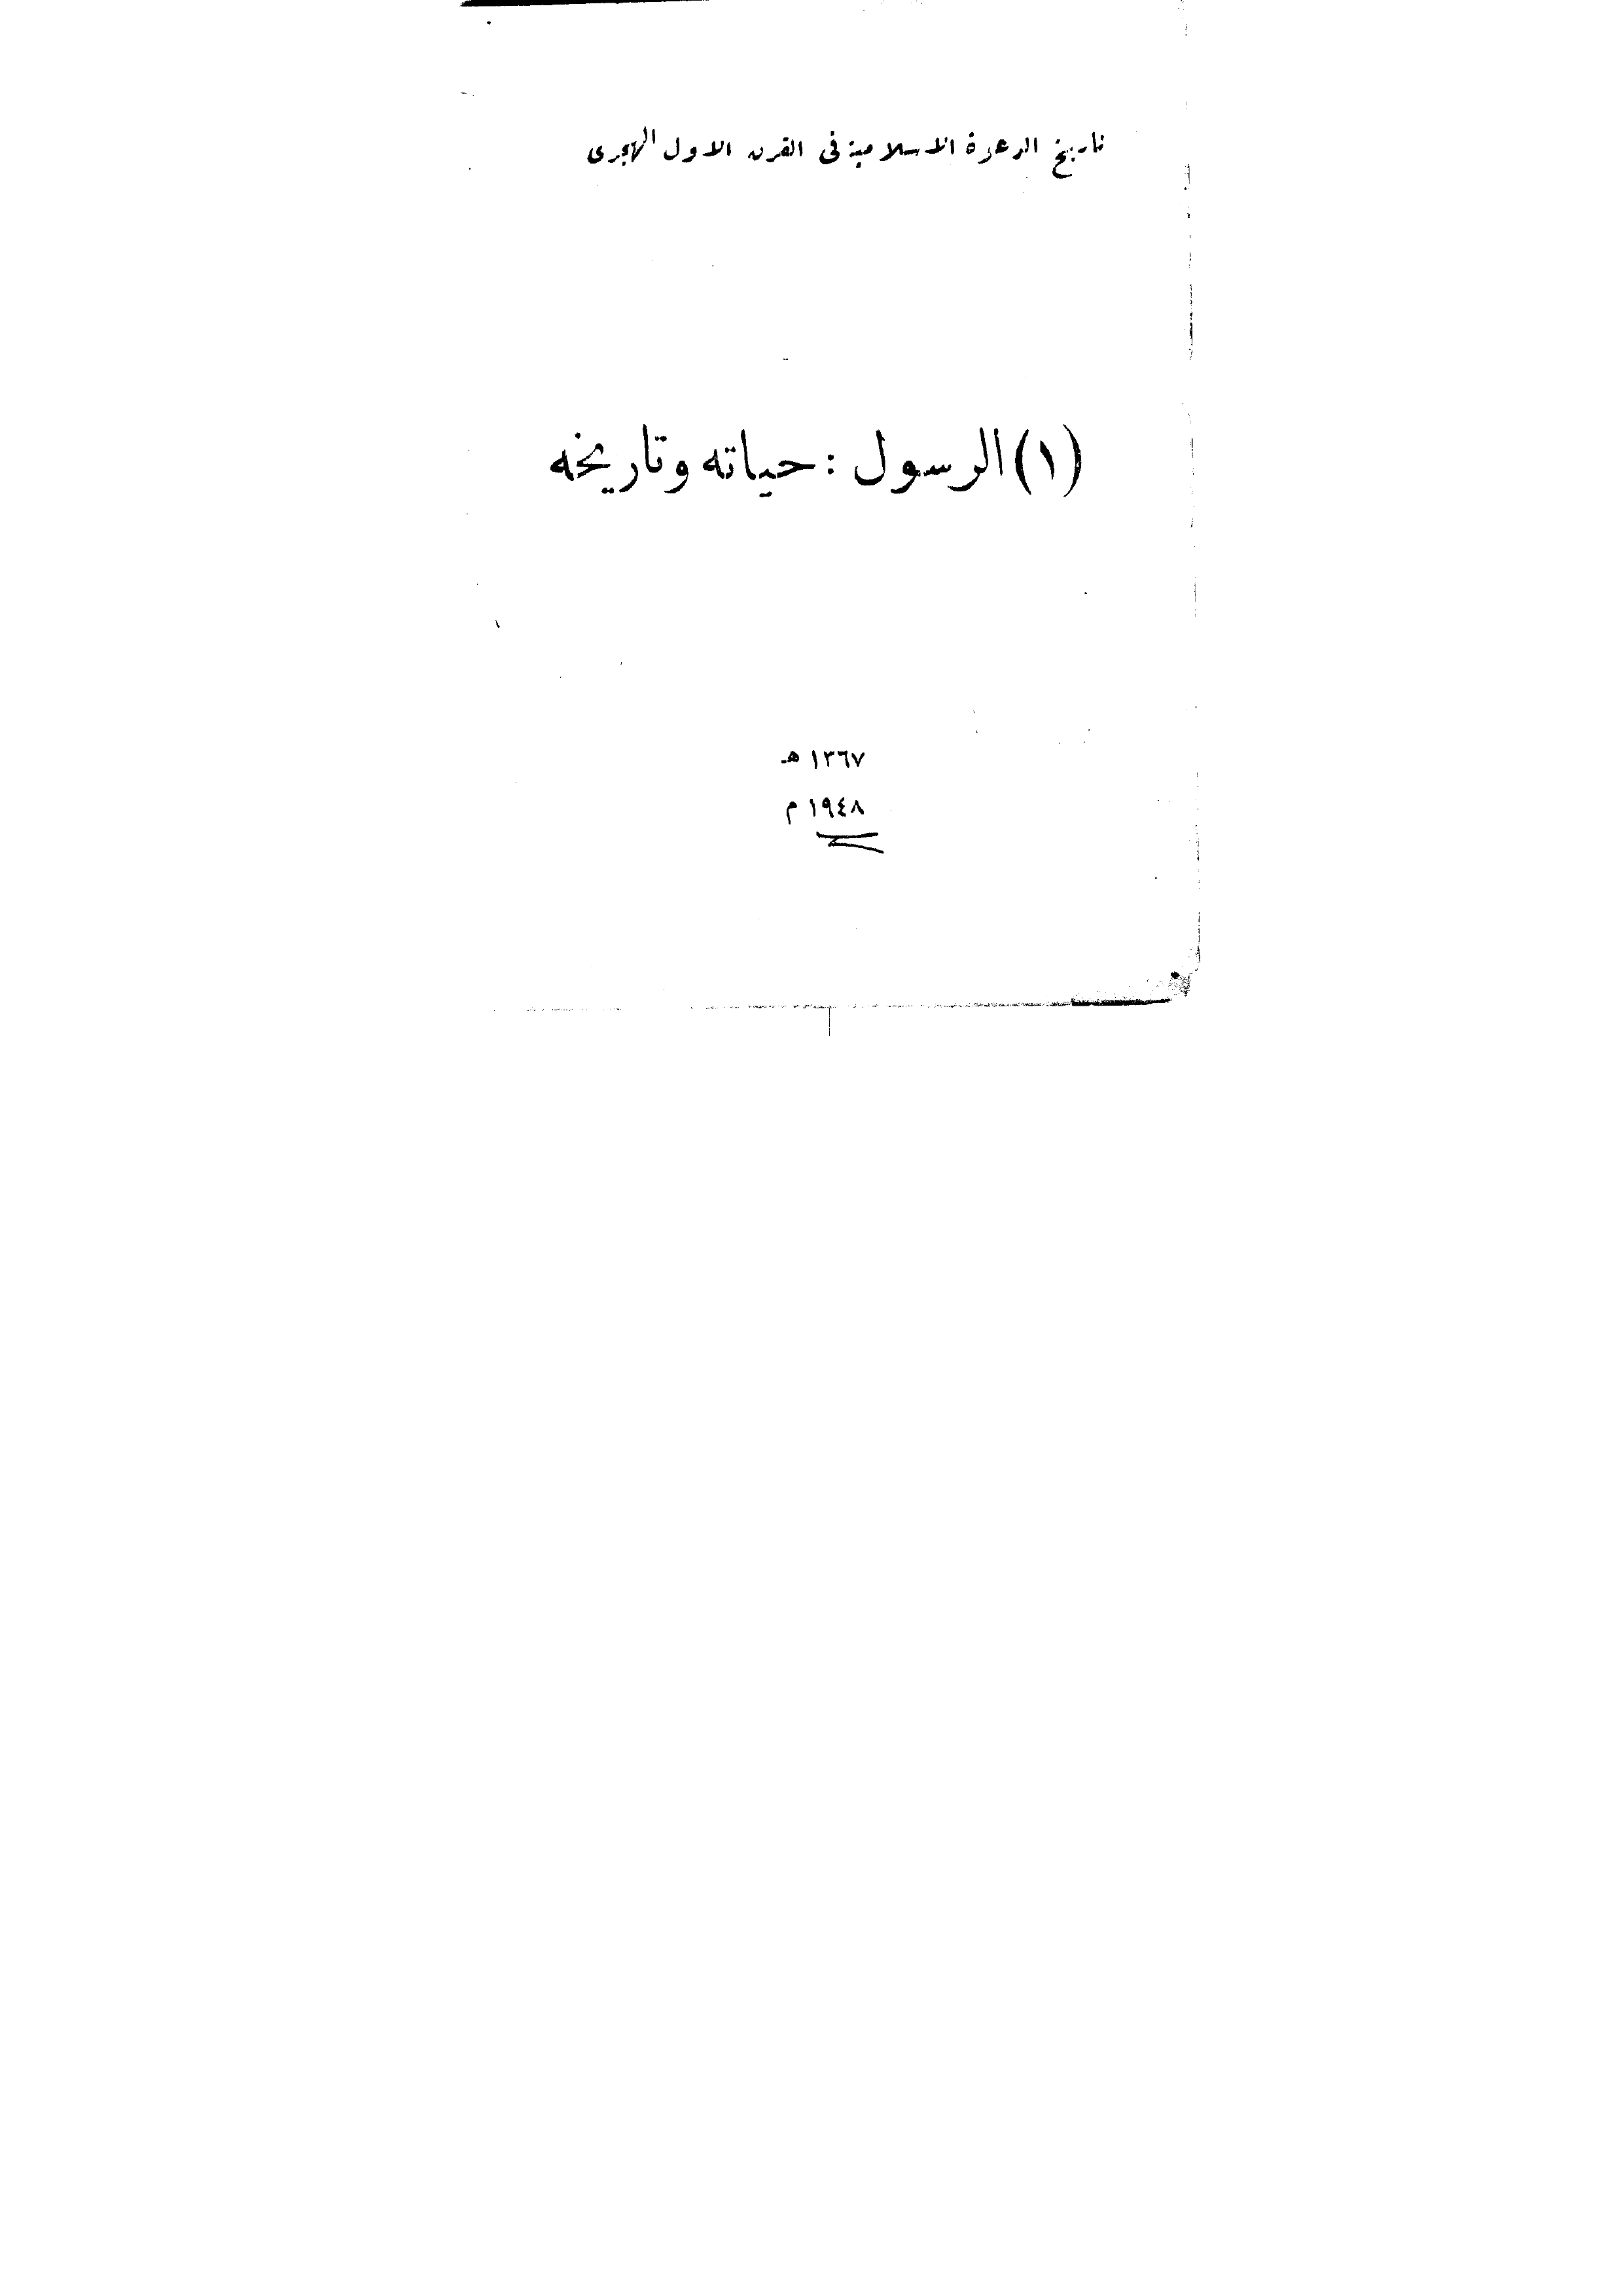 تاريخ الدعوة الاسلامية فى القرن الاول الهجرى
(١) الرسول : حياته وتاريخه
١٣٦٧ هـ
١٩٤٨ م